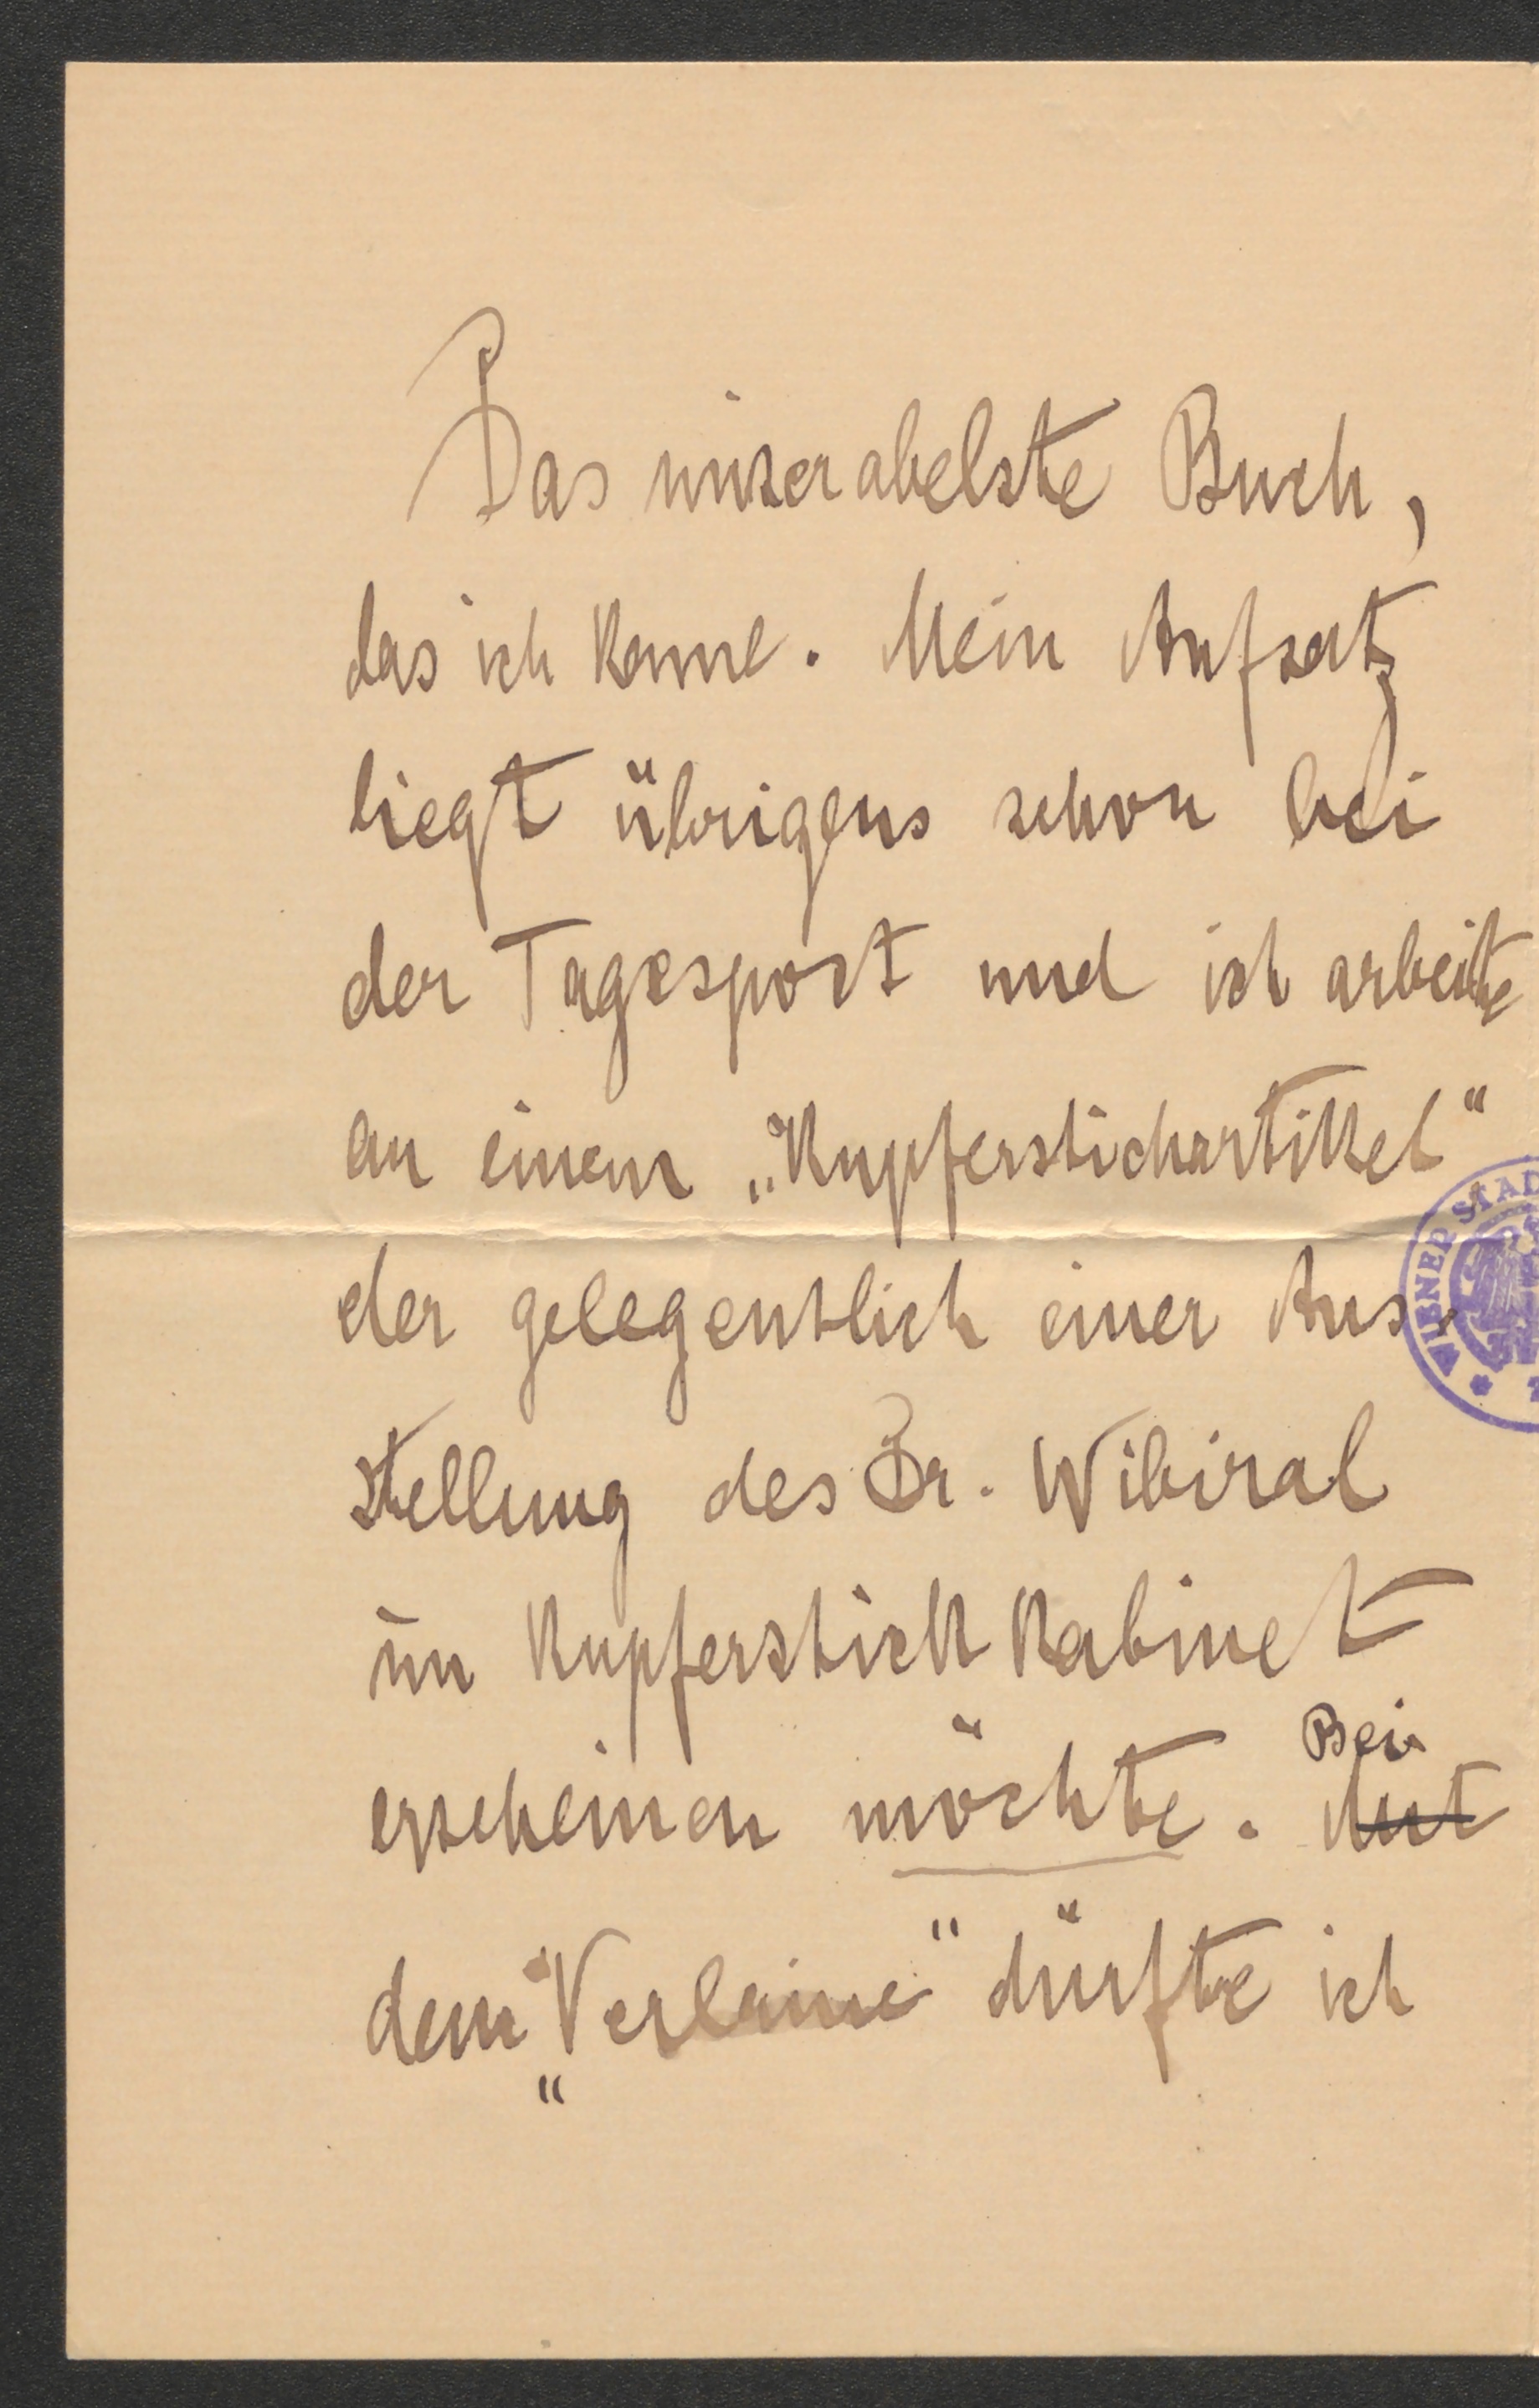 Das miserabelste Buch,
das ich kenne. Mein Aufsatz
liegt übrigens schon bei
der Tagespost und ich arbeite
an einem „Kupferstichartikel“
der gelegentlich einer Aus-
stellung des Dr. Wibiral
im Kupferstichkabinet
erscheinen möchte. Bei
dem „Verlaine“ dürfte ich
WIENER STAD